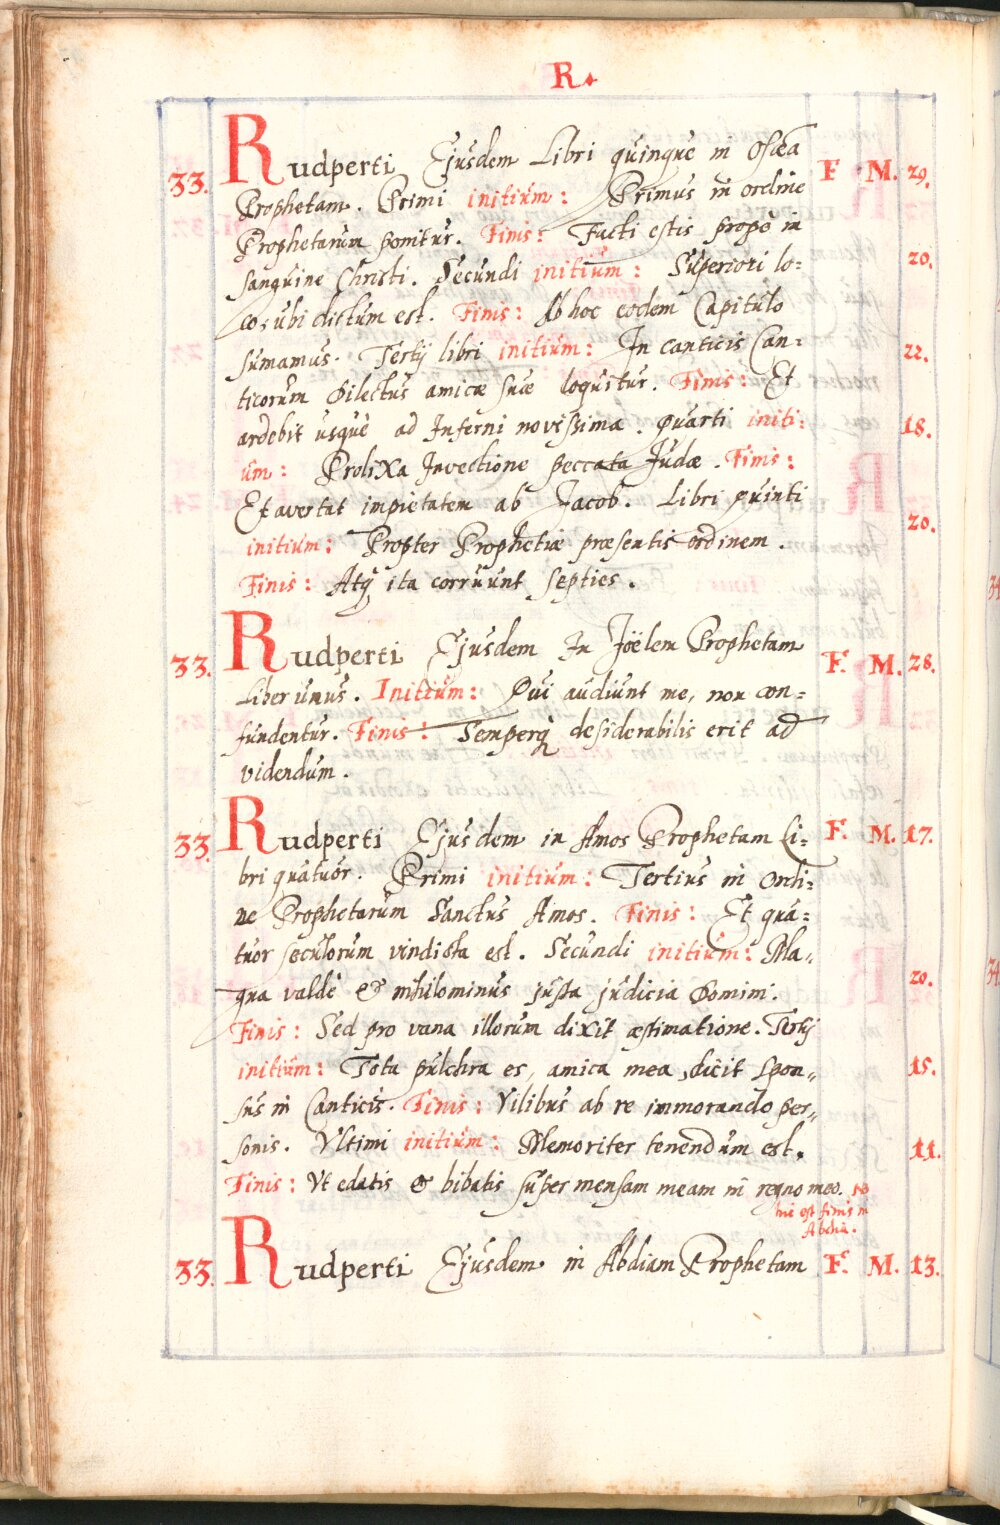 R.
33. Rudperti Ejusdem Libri quinque in Oseã F M. 29.
Prophetam. Primi initium: Primus in ordine
Prophetarum ponitur. Finis: Facti estis propè in 20.
sanguine Christi. Secundi initium: Superiori lo:
co, ubi dictum est. Finis: Ab hoc eodem Capitulo
sumamus. Tertij libri initium: In canticis Can: 22.
ticorum dilectus amicæ suæ loquitur. Finis: Et
ardebit usquè ad Inferni novissima. Quarti initi: 18.
um: Prolixa Invectione peccata Judæ. Finis:
Et avertat impietatem ab Jacob. Libri quinti 20.
initium: Propter Prophetiæ præsentis ordinem.
Finis: Atq́ ita corruunt septies.
33. Rudperti Ejusdem In Joëlem Prophetam F. M. 28.
Liber unus. Initium: Qui audiunt me, non con:
fundentur. Finis: Semperq́ desiderabilis erit ad
videndum.
33. Rudperti Ejusdem in Amos Prophetam Li: F. M. 17.
bri quatuor. Primi initium: Tertius in Ordi:
ne Prophetarum Sanctus Amos. Finis: Et qua:
tuor seculorum vindicta est. Secundi initium: Ma„
gna valdè & nihilominus justa judicia Domini. 20.
Finis: Sed pro vana illorum dixit æstimatione. Tertij
initium: Tota pulchra es, amica mea, dicit Spon„ 15.
sus in Canticis. Finis: Vilibus ab re immorando per„
sonis. Ultimi initium: Memoriter tenendum est. 11.
Finis: Ut edatis & bibatis super mensam meam in regno meo.
hic est finis in
33. Rudperti Ejusdem in Abdiam Prophetam F. M. 13.